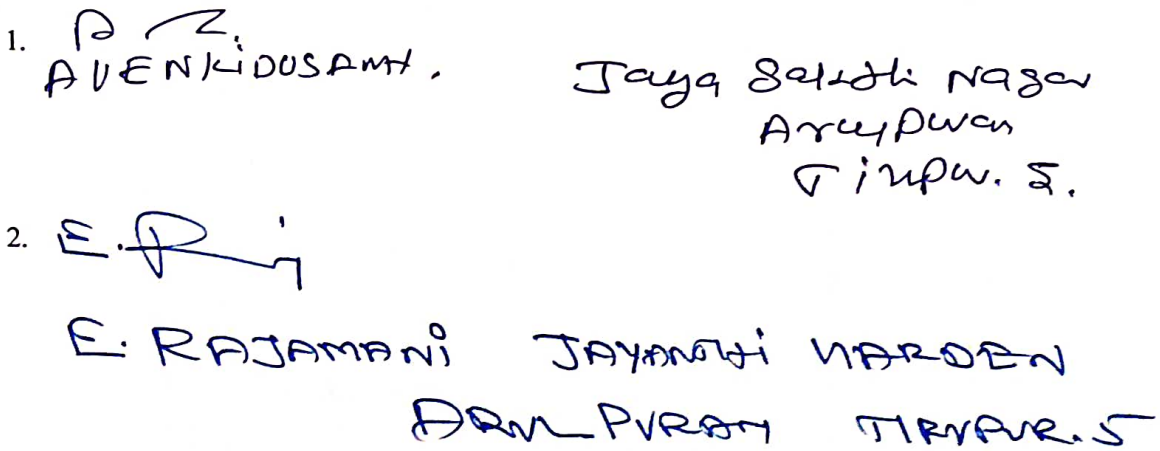 1.
A VENKIDUSAMY.
Jaya Sakthi Nagar
Arulpuram
Tirupur. 5.
2. E. R
E. RAJAMANi JAYANTHi GARDEN
ARUL PURAM TIRUPUR. 5